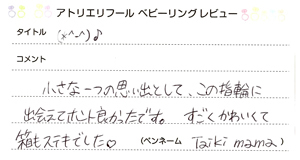 アトリエリフール ベビーリングレビュー
タイトル (*^-^)♪
コメント
小さな一つの思い出として、この指輪に
出会えてホント良かったです。 すごくかわいくて
箱もステキでした♡ (ペンネーム Taiki mama)